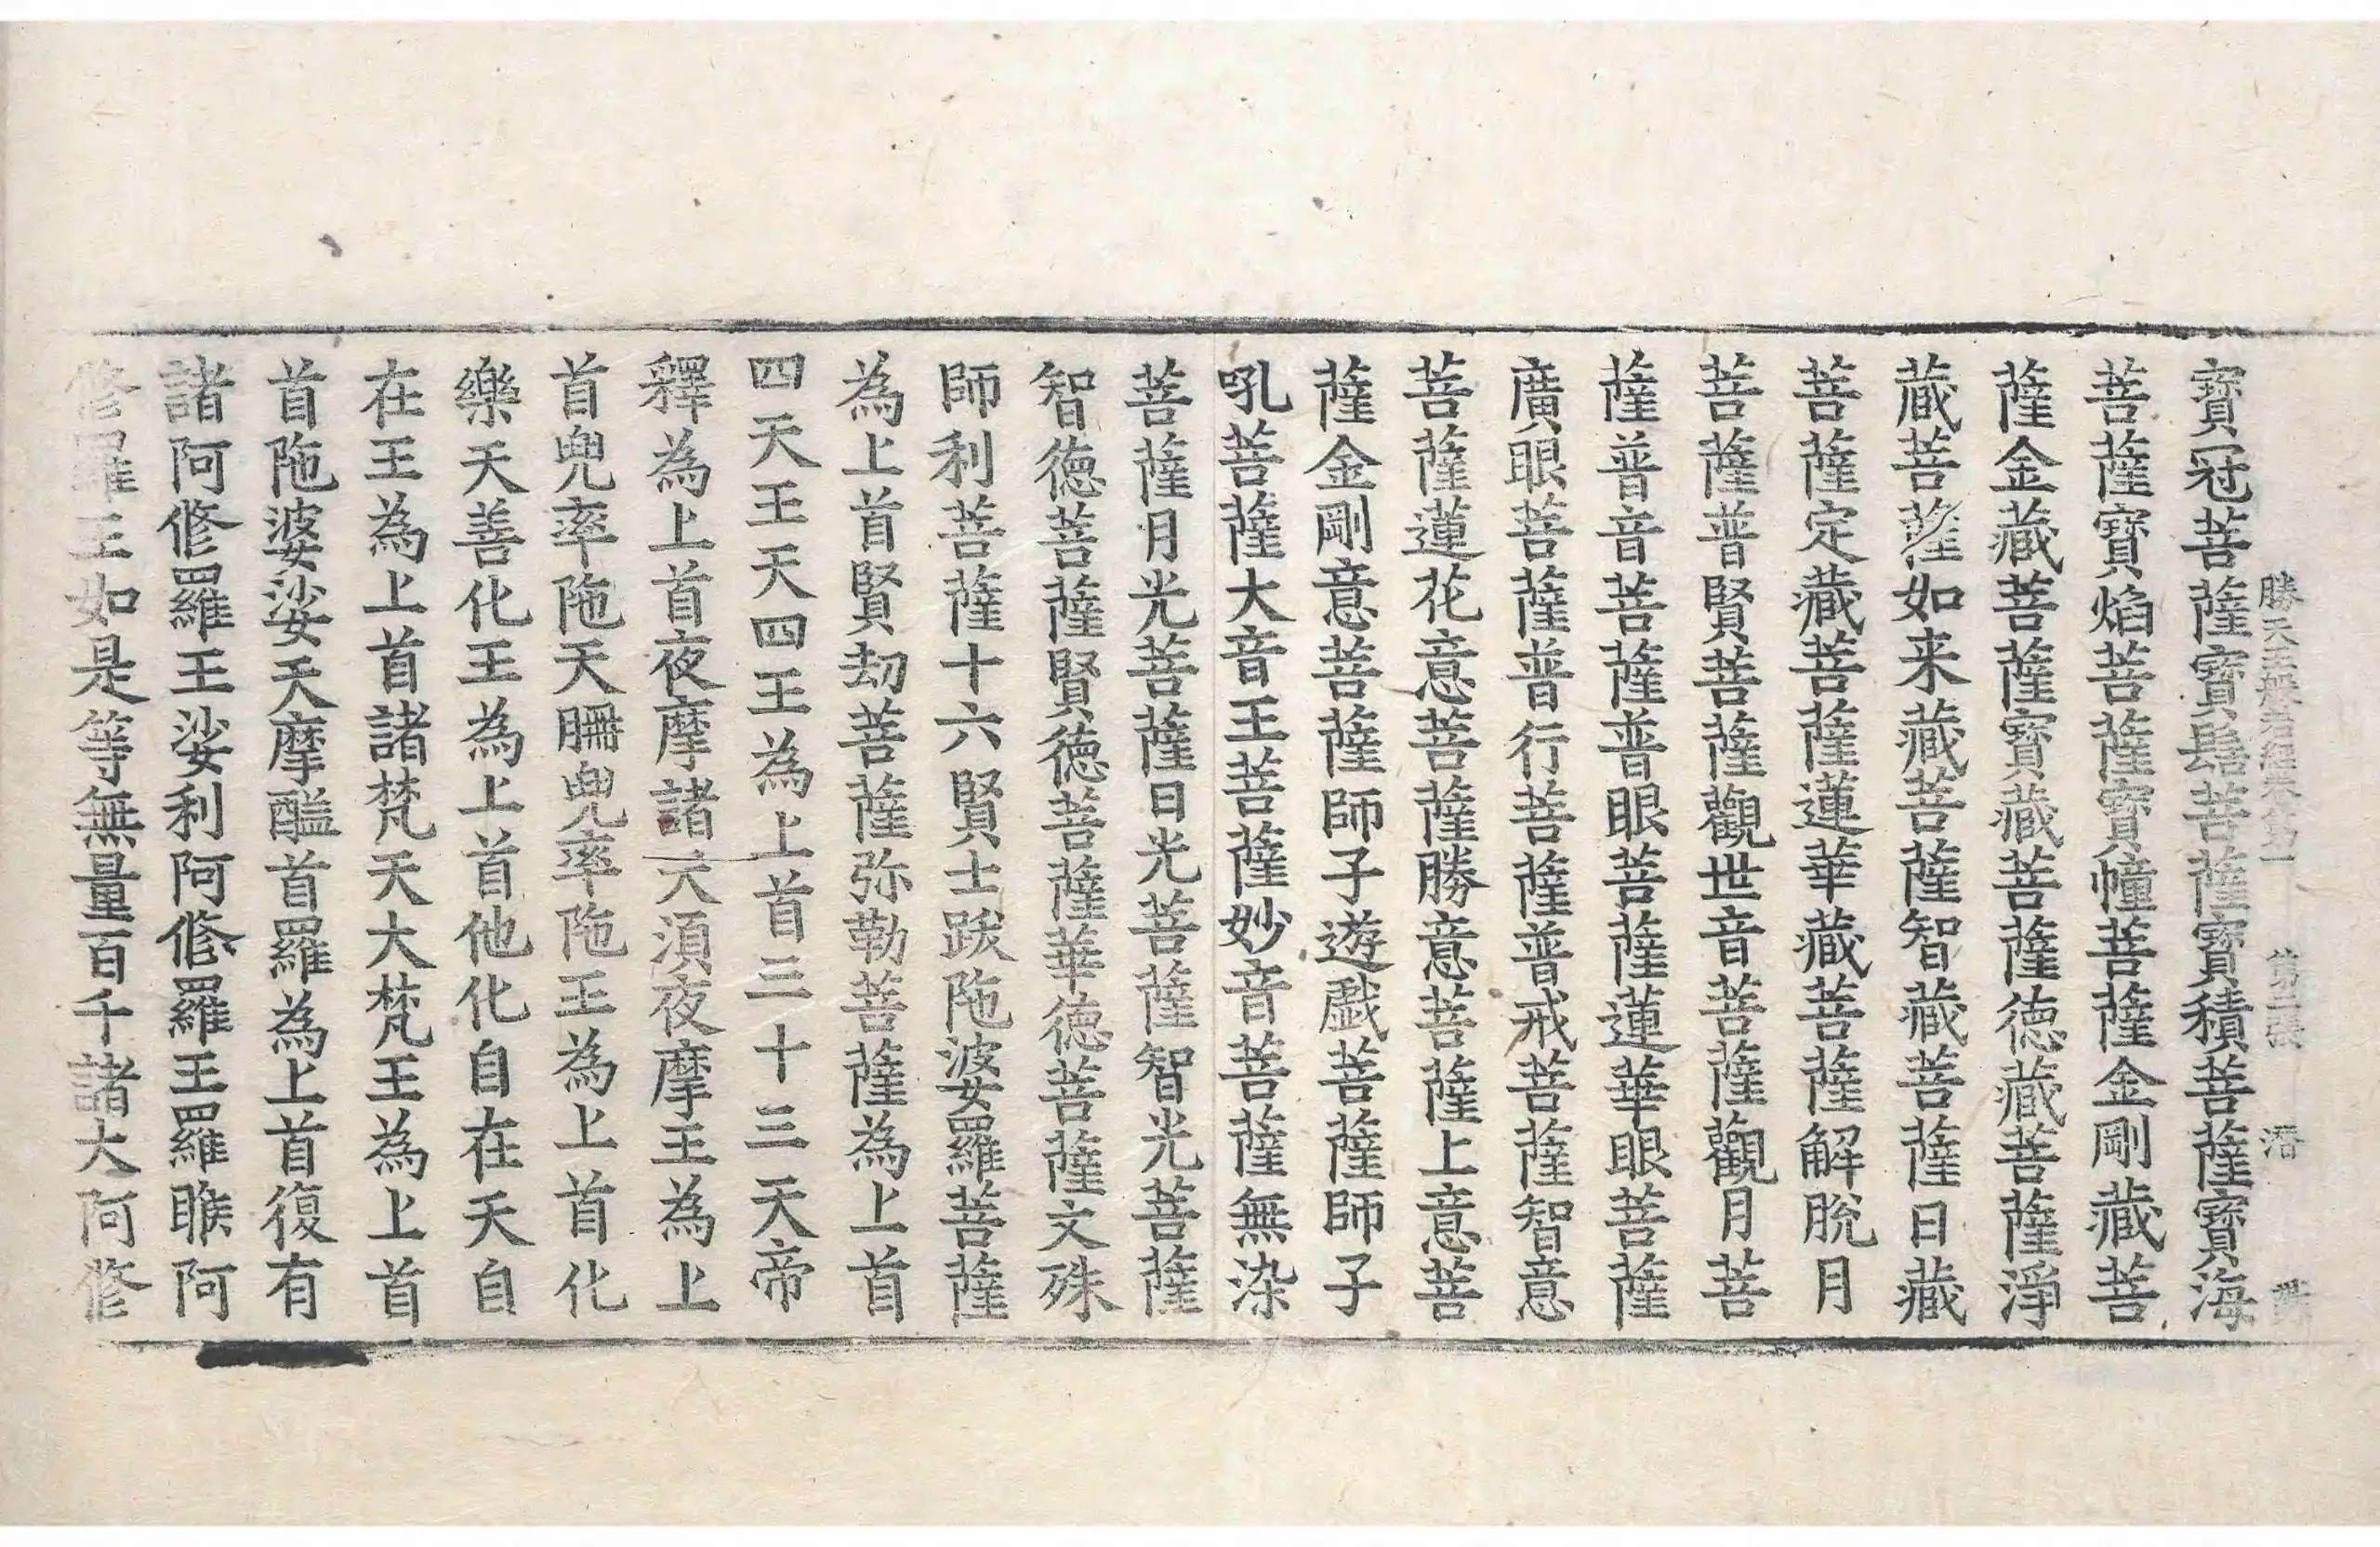 勝天王般若經卷第一 第二張 潛
寶冠菩薩寶髻菩薩寶積菩薩寶海
菩薩寶焰菩薩寶幢菩薩金剛藏菩
薩金藏菩薩寶藏菩薩德藏菩薩淨
藏菩薩如来藏菩薩智藏菩薩日藏
菩薩定藏菩薩蓮華藏菩薩解脫月
菩薩普賢菩薩觀世音菩薩觀月菩
薩普音菩薩普眼菩薩蓮華眼菩薩
廣眼菩薩普行菩薩普戒菩薩智意
菩薩蓮花意菩薩勝意菩薩上意菩
薩金剛意菩薩師子遊戲菩薩師子
吼菩薩大音王菩薩妙音菩薩無染
菩薩月光菩薩日光菩薩智光菩薩
智德菩薩賢德菩薩華德菩薩文殊
師利菩薩十六賢士跋陁婆羅菩薩
為上首賢劫菩薩弥勒菩薩為上首
四天王天四王為上首三十三天帝
釋為上首夜摩諸天須夜摩王為上
首兜率陁天刪兜率陁王為上首化
樂天善化王為上首他化自在天自
在王為上首諸梵天大梵王為上首
首陁婆娑天摩醯首羅為上首復有
諸阿修羅王娑利阿修羅王羅睺阿
修羅王如是等無量百千諸大阿修